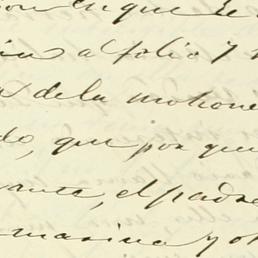 en que se
al folio 7
de la mohone
do, que por que
ante, el padre
marina y ot